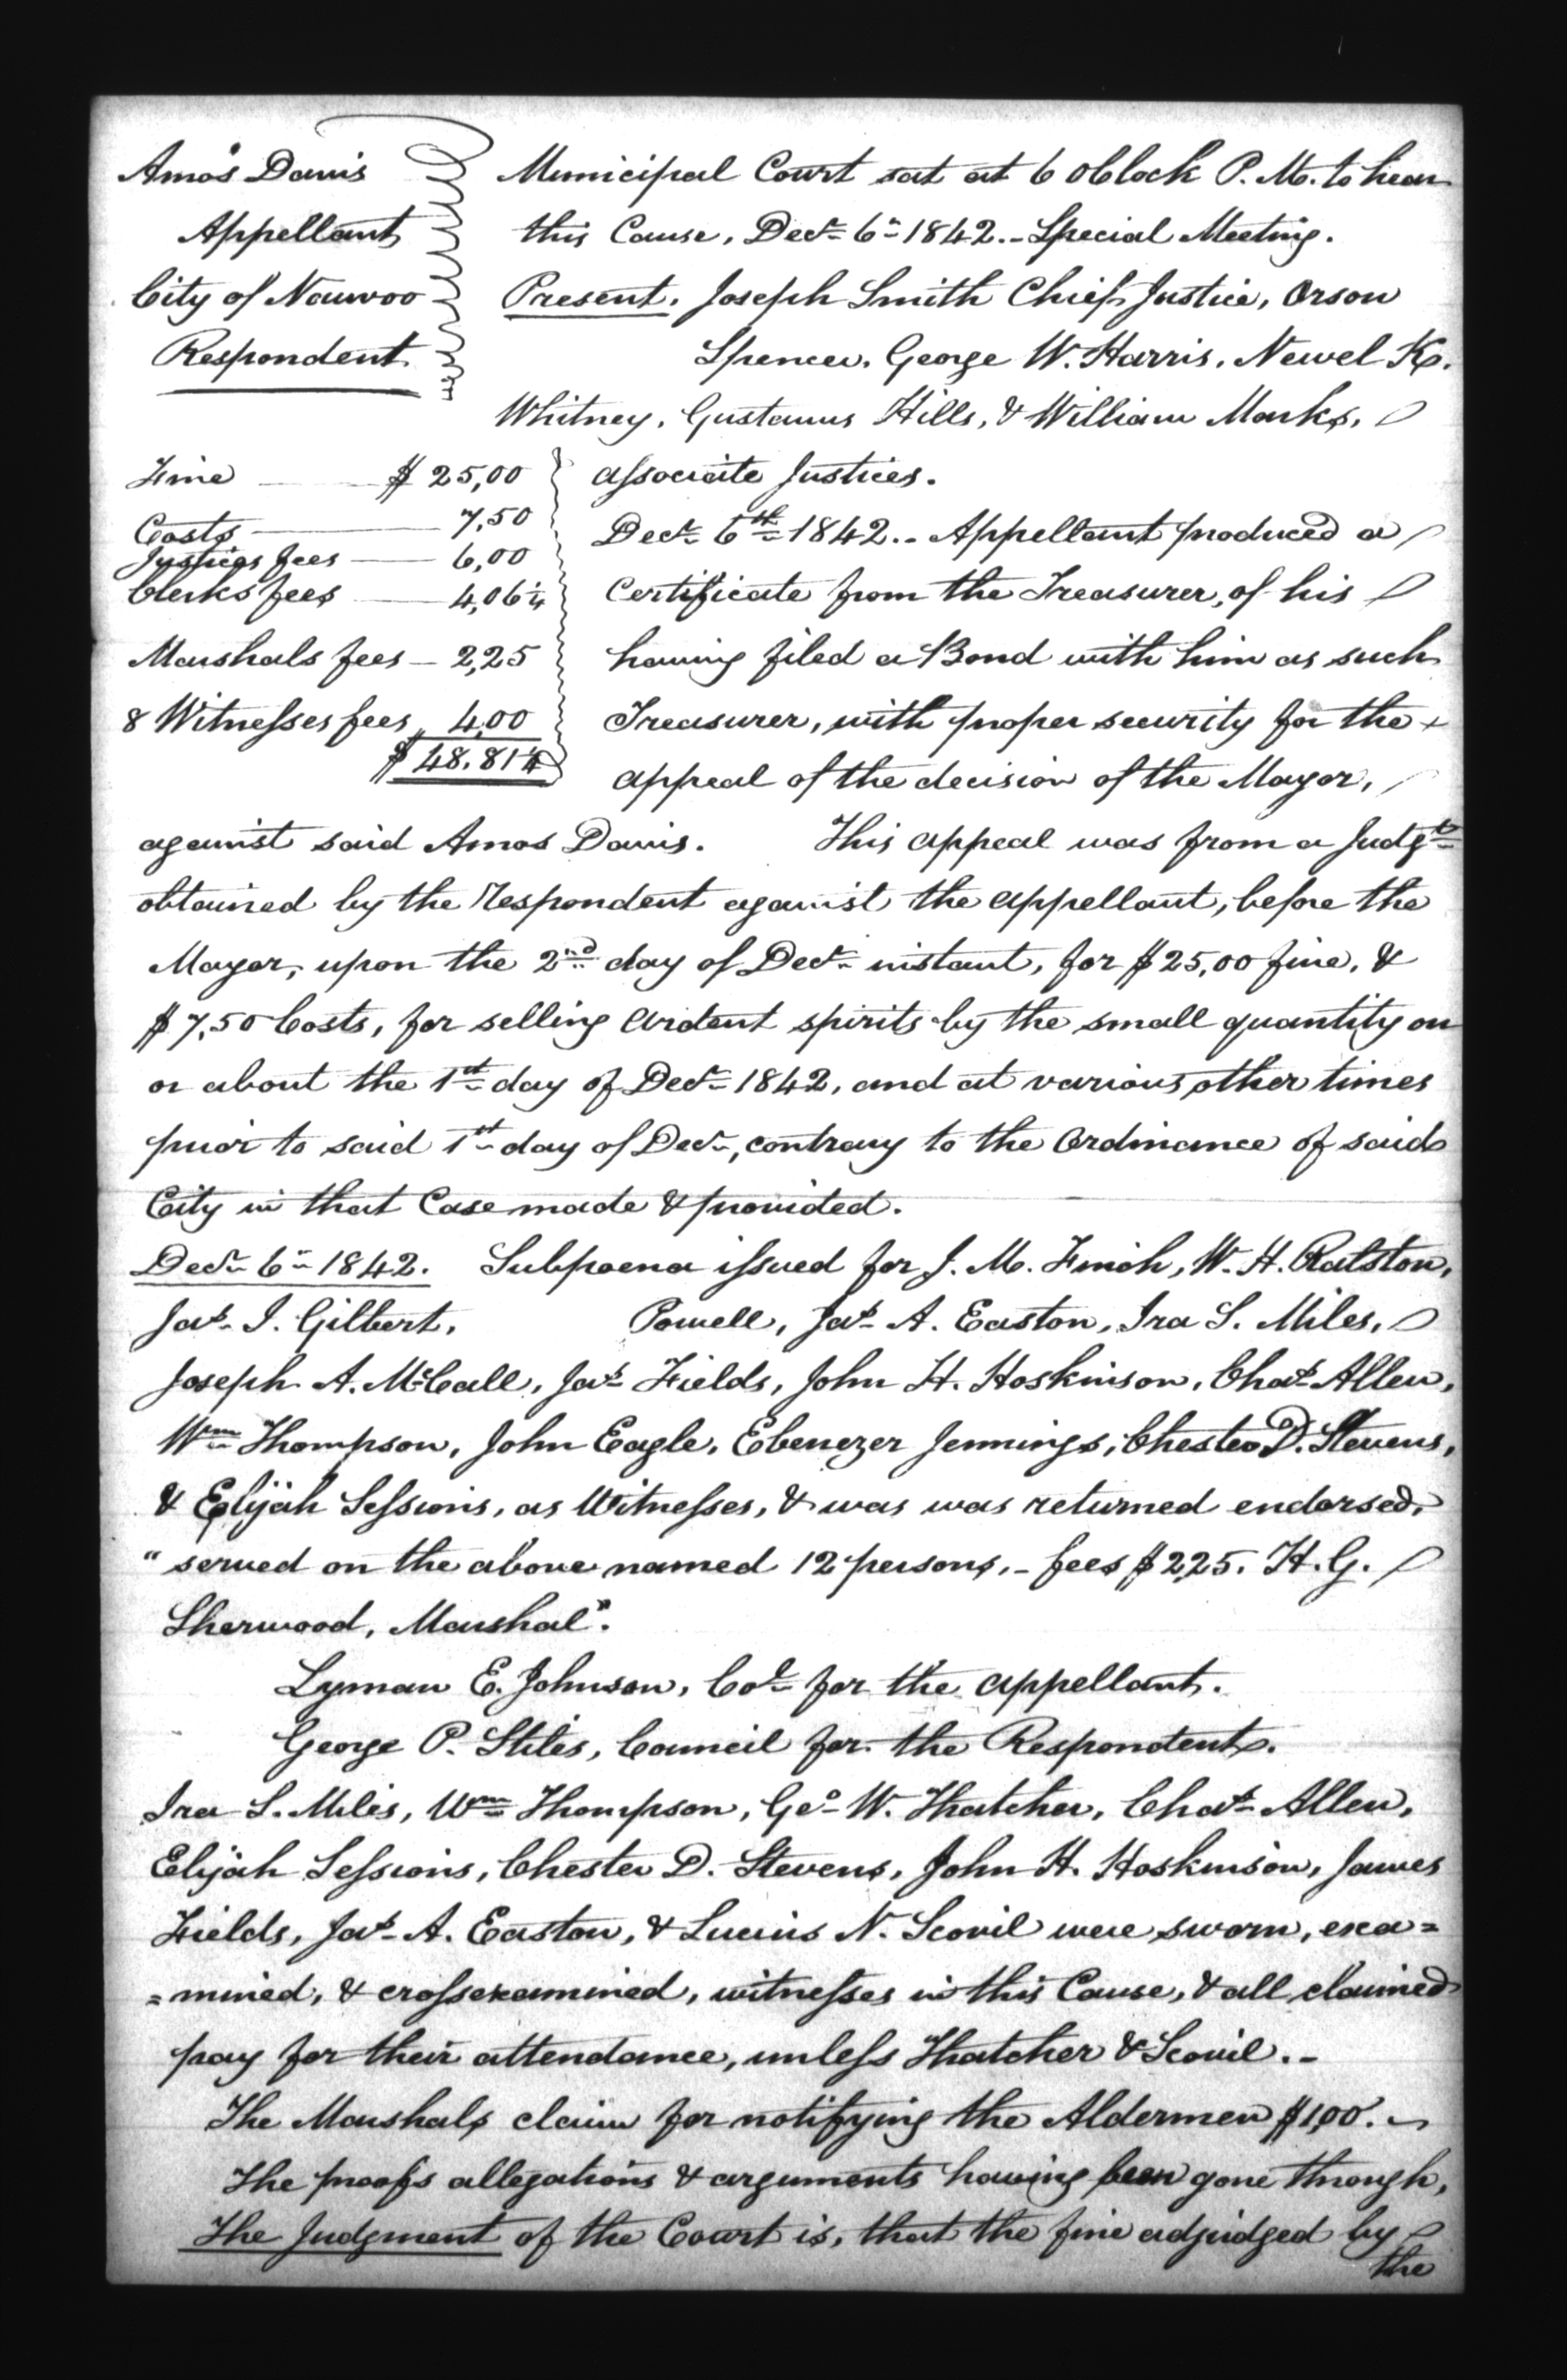 Amos Davis
Appellant
City of Nauvoo
Respondent
Municipal Court sat at 6 oClock P. M. to hear
this Cause, Decr. 6th. 1842. - Special Meeting.
Present. Joseph Smith Chief Justice, Orson
Spencer, George W. Harris, Newel K.
Whitney, Gustavus Hills, & William Marks,
associate Justices.
Fine $ 25,00
Costs 7,50
Justices fees 6,00
Clerks fees 4,06¼
Marshals fees 2,25
8 Witnesses fees, 4,00
$ 48.81¼
Decr. 6th. 1842.. Appellant produced a
Certificate from the Treasurer, of his
having filed a Bond with him as such
Treasurer, with proper security for the
appeal of the decision of the Mayor,
against said Amos Davis. This appeal was from a Judgt.
obtained by the Respondent against the appellant, before the
Mayor, upon the 2nd. day of Decr. instant, for $25,00 fine, &
$7,50 Costs, for selling ardent spirits by the small quantity on
or about the 1st. day of Decr. 1842, and at various other times
prior to said 1st. day of Decr., contrary to the Ordinance of said
City in that Case made & provided.
Decr. 6th. 1842. Subpoena issued for J. M. Finch, W. H. Ralston,
Jas. I. Gilbert, Powell, Jas. A. Easton, Ira S. Miles,
Joseph A. McCall, Jas. Fields, John H. Hoskinson, Chas. Allen,
Wm. Thompson, John Eagle, Ebenezer Jennings, Chester D. Stevens,
& Elijah Sessions, as Witnesses, & was was returned endorsed,
"served on the above named 12 persons, - fees $2,25. H. G.
Sherwood, Marshal".
Lyman E. Johnson, Col. for the appellant.
George P. Stiles, Council for the Respondent.
Ira S. Miles, Wm. Thompson, Geo. W. Thatcher, Chas. Allen,
Elijah Sessions, Chester D. Stevens, John H. Hoskinson, James
Fields, Jas. A. Easton, & Lucius N. Scovil were sworn, exa=
=mined, & crossexamined, witnesses in this Cause, & all claimed
pay for their attendance, unless Thatcher & Scovil. -
The Marshals claim for notifying the Aldermen $1,00.
The proofs allegations & arguments having been gone through,
The Judgment of the Court is, that the fine adjudged by
the